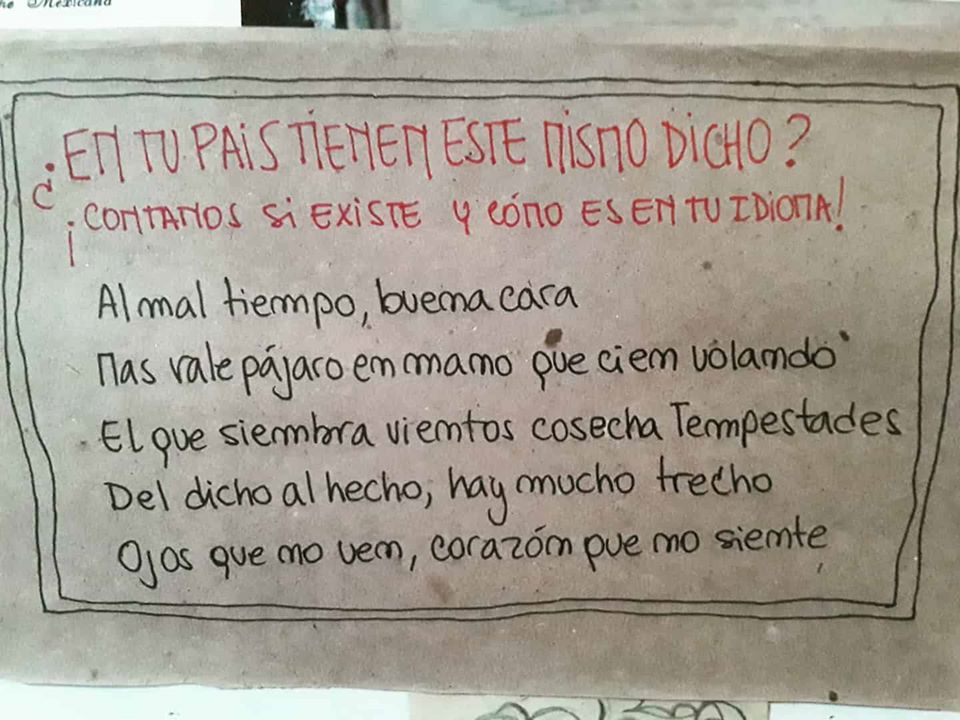 Mexicana
¿EN TU PAIS TIENEN ESTE MISMO DICHO?
¡CONTANOS SI EXISTE Y CÓMO ES EN TU IDIOMA!
Al mal tiempo, buena cara
Mas vale pájaro en mano que cien volando
El que siembra vientos cosecha Tempestades
Del dicho al hecho, hay mucho trecho
Ojos que no ven, corazón que no siente